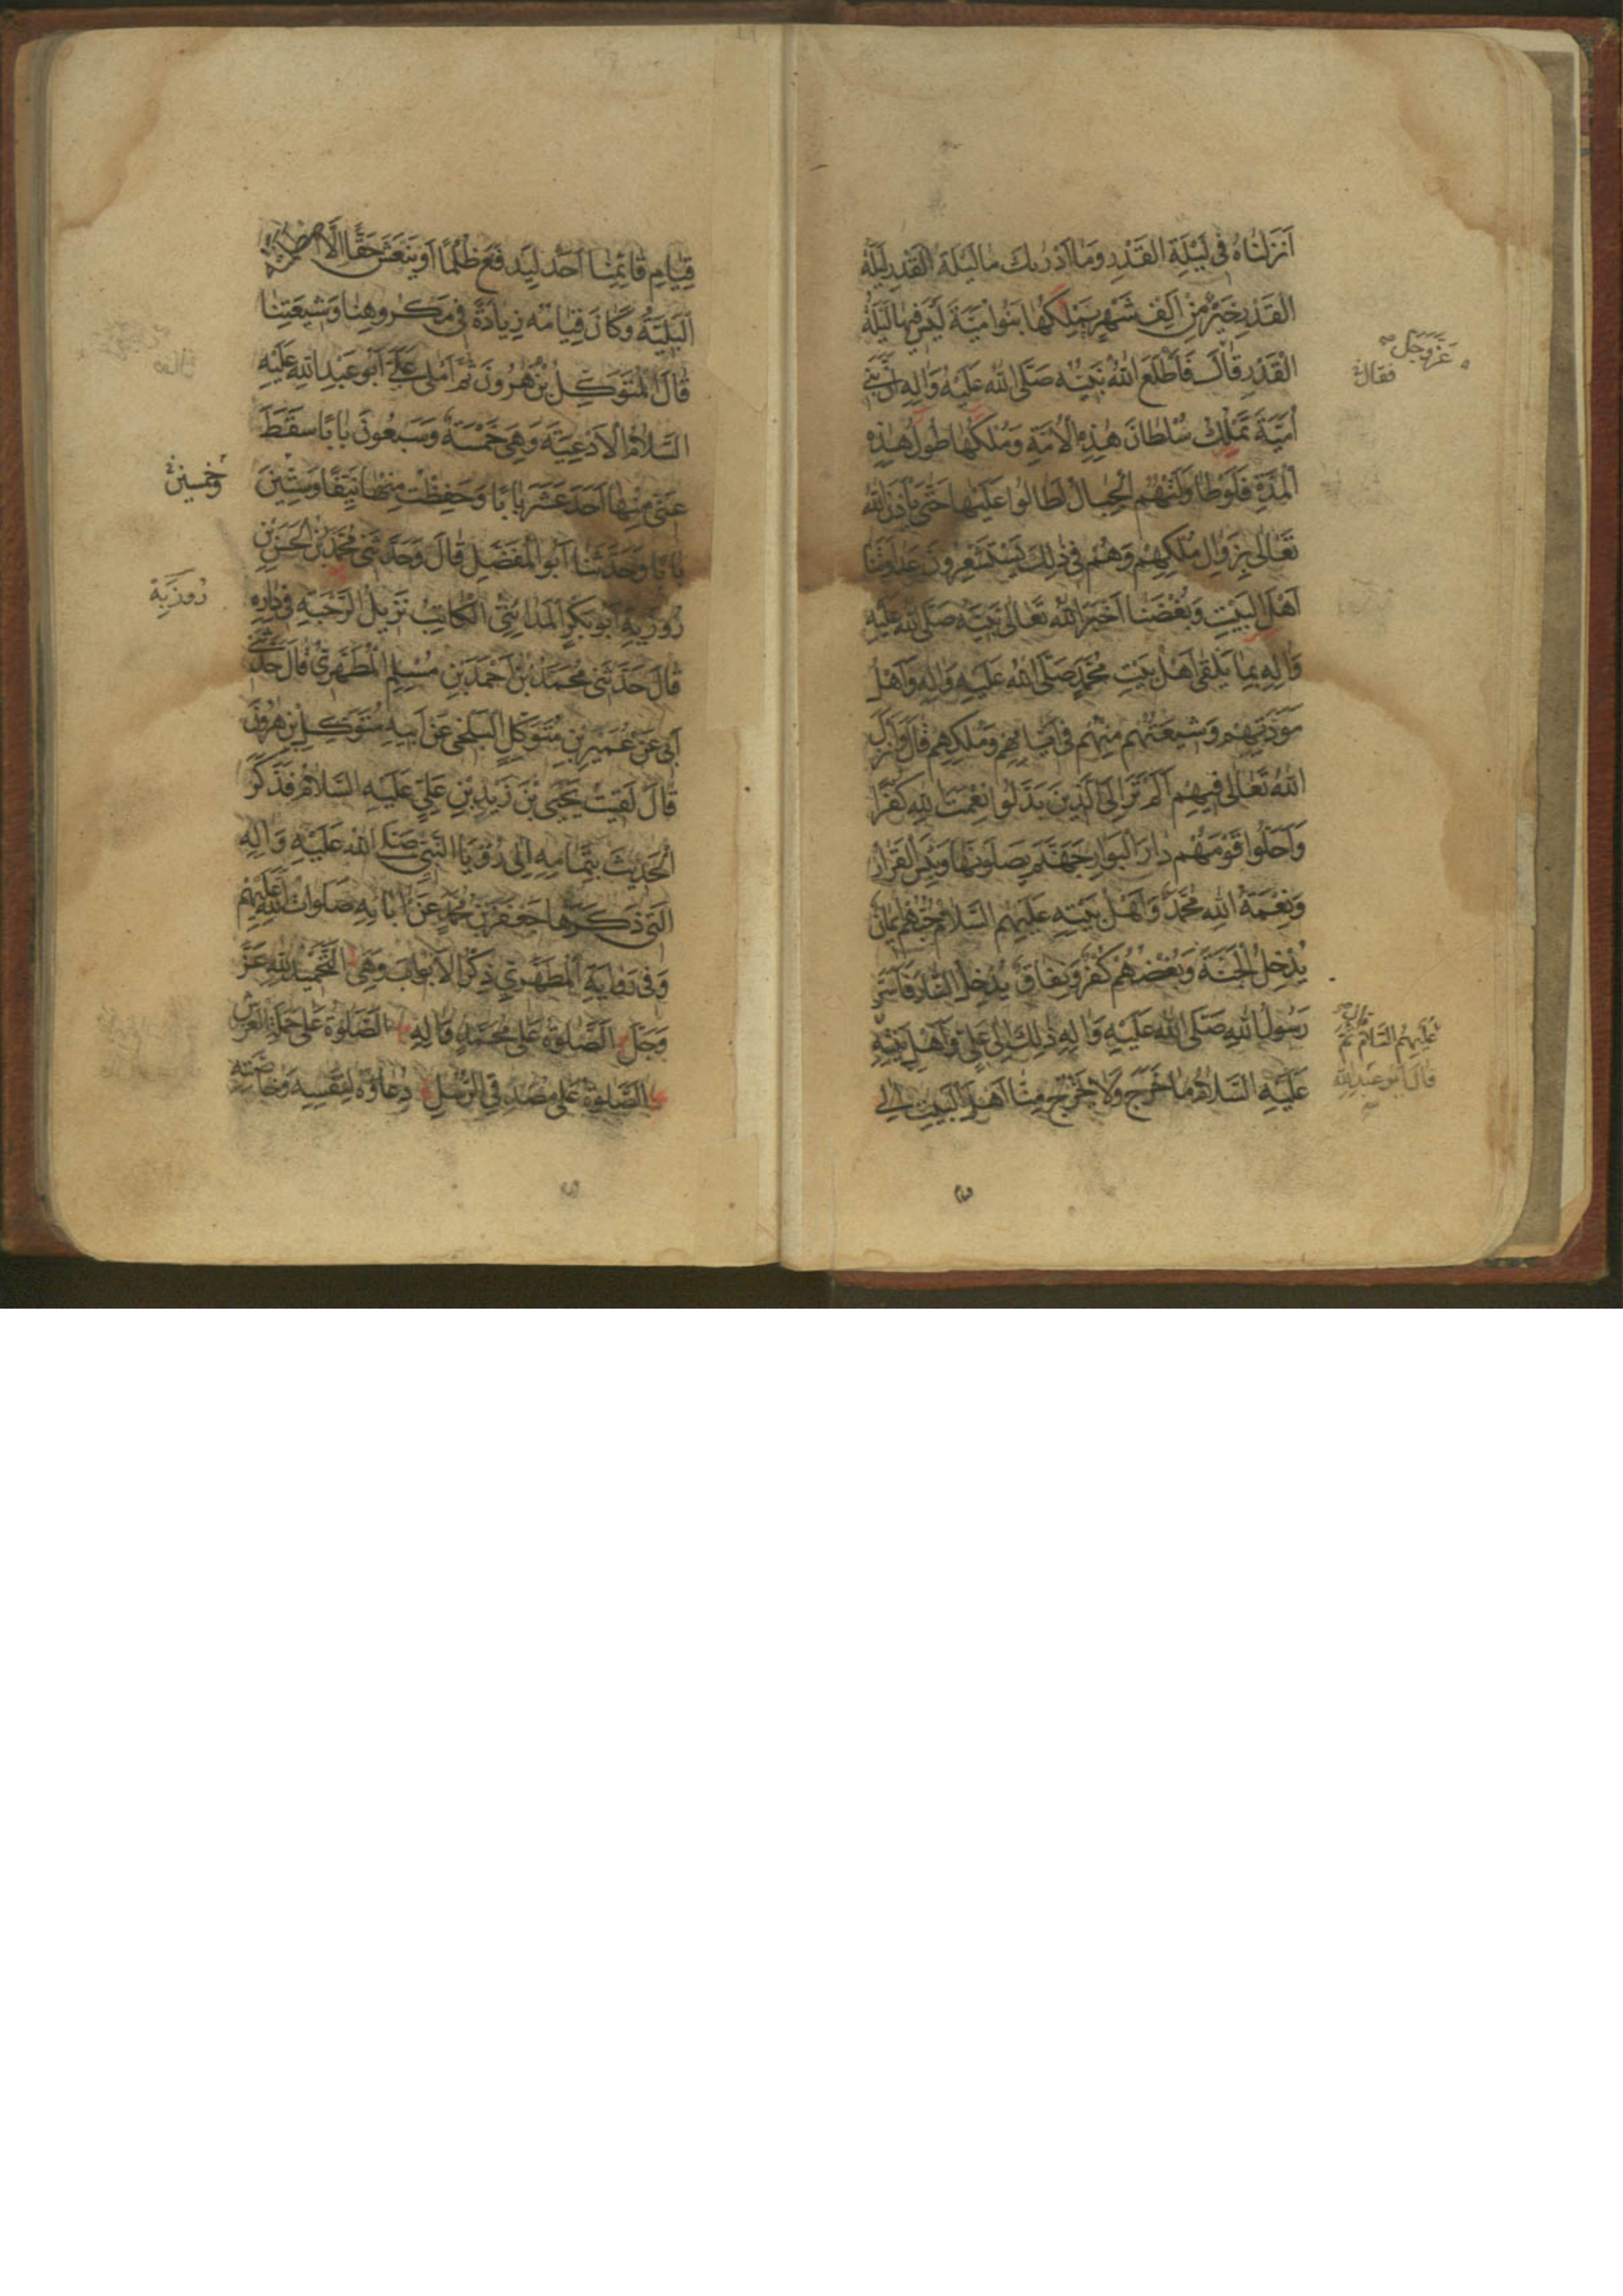 اَنْزَلْنَاهُ فِى لَيْلَةِ الْقَدْرِ وَمَا اَدْرٰيكَ مَا لَيْلَةُ الْقَدْرِ لَيْلَةُ
الْقَدْرِ خَيْرٌ مِنْ اَلْفِ شَهْرٍ يَمْلِكُهَا بَنُو اُمَيَّةَ لَيْسَ فِيهَا لَيْلَةُ
الْقَدْرِ قَالَ فَاَطْلَعَ اللّٰهُ نَبِيَّهُ صَلَّى اللّٰهُ عَلَيْهِ وَاٰلِهِ اَنَّ بَنِى
اُمَيَّةَ تَمْلِكُ سُلْطَانَ هٰذِهِ الْاُمَّةِ وَمُلْكَهَا طُولَ هٰذِهِ
الْمُدَّةِ فَلَوْ طَاوَلَتْهُمُ الْجِبَالُ لَطَالُوا عَلَيْهَا حَتّٰى يَأْذَنَ اللّٰهُ
تَعَالٰى بِزَوَالِ مُلْكِهِمْ وَهُمْ فِى ذٰلِكَ يَسْتَشْعِرُونَ عَدَاوَتَنَا
اَهْلَ الْبَيْتِ وَبُغْضَنَا اَخْبَرَ اللّٰهُ تَعَالٰى نَبِيَّهُ صَلَّى اللّٰهُ عَلَيْهِ
وَاٰلِهِ بِمَا يَلْقٰى اَهْلُ بَيْتِ مُحَمَّدٍ صَلَّى اللّٰهُ عَلَيْهِ وَاٰلِهِ وَاَهْلُ
مَوَدَّتِهِمْ وَشِيعَتُهُمْ مِنْهُمْ فِى اَيَّامِهِمْ وَمُلْكِهِمْ قَالَ وَاَنْزَلَ
اللّٰهُ تَعَالٰى فِيهِمْ اَلَمْ تَرَ اِلَى الَّذِينَ بَدَّلُوا نِعْمَتَ اللّٰهِ كُفْرًا
وَاَحَلُّوا قَوْمَهُمْ دَارَ الْبَوَارِ جَهَنَّمَ يَصْلَوْنَهَا وَبِئْسَ الْقَرَارُ
وَنِعْمَةُ اللّٰهِ مُحَمَّدٌ وَاَهْلُ بَيْتِهِ عَلَيْهِمُ السَّلَامُ حُبُّهُمْ اِيمَانٌ
يُدْخِلُ الْجَنَّةَ وَبُغْضُهُمْ كُفْرٌ وَنِفَاقٌ يُدْخِلُ النَّارَ فَاَسَرَّ
رَسُولُ اللّٰهِ صَلَّى اللّٰهُ عَلَيْهِ وَاٰلِهِ ذٰلِكَ اِلٰى عَلِىٍّ وَاَهْلِ بَيْتِهِ
عَلَيْهِ السَّلَامُ مَا خَرَجَ وَلَا يَخْرُجُ مِنَّا اَهْلَ الْبَيْتِ اِلٰى
عَزَّ وَجَلَّ
فَقَالَ
قَالَ
عَلَيْهِمُ السَّلَامُ ثُمَّ
قَالَ اَبُو عَبْدِ اللّٰهِ
قِيَامِ قَائِمِنَا اَحَدٌ لِيَدْفَعَ ظُلْمًا اَوْ يَنْعَشَ حَقًّا اِلَّا اصْطَلَمَتْهُ
الْبَلِيَّةُ وَكَانَ قِيَامُهُ زِيَادَةً فِى مَكْرُوهِنَا وَشِيعَتِنَا
قَالَ الْمُتَوَكِّلُ بْنُ هٰرُونَ ثُمَّ اَمْلٰى عَلَىَّ اَبُو عَبْدِ اللّٰهِ عَلَيْهِ
السَّلَامُ الْاَدْعِيَةَ وَهِىَ خَمْسَةٌ وَسَبْعُونَ بَابًا سَقَطَ
عَنِّى مِنْهَا اَحَدَ عَشَرَ بَابًا وَحَفِظْتُ مِنْهَا نَيِّفًا وَسِتِّينَ
بَابًا وَحَدَّثَنَا اَبُو الْمُفَضَّلِ قَالَ وَحَدَّثَنِى مُحَمَّدُ بْنُ الْحَسَنِ بْنِ
رُوزْبِهِ اَبُو بَكْرٍ الْمَدَائِنِىُّ الْكَاتِبُ نَزِيلُ الرَّحْبَةِ فِى دَارِهِ
قَالَ حَدَّثَنِى مُحَمَّدُ بْنُ اَحْمَدَ بْنِ مُسْلِمٍ الْمُطَهَّرِىُّ قَالَ حَدَّثَنِى
اَبِى عَنْ عُمَيْرِ بْنِ مُتَوَكِّلٍ الْبَلْخِىِّ عَنْ اَبِيهِ مُتَوَكِّلِ بْنِ هٰرُونَ
قَالَ لَقِيتُ يَحْيَى بْنَ زَيْدِ بْنِ عَلِىٍّ عَلَيْهِ السَّلَامُ فَذَكَرَ
الْحَدِيثَ بِتَمَامِهِ اِلٰى رُؤْيَا النَّبِىِّ صَلَّى اللّٰهُ عَلَيْهِ وَاٰلِهِ
الَّتِى ذَكَرَهَا جَعْفَرُ بْنُ مُحَمَّدٍ عَنْ اٰبَائِهِ صَلَوَاتُ اللّٰهِ عَلَيْهِمْ
وَفِى رِوَايَةِ الْمُطَهَّرِىِّ ذِكْرُ الْاَبْوَابِ وَهِىَ التَّحْمِيدُ لِلّٰهِ عَزَّ
وَجَلَّ الصَّلٰوةُ عَلٰى مُحَمَّدٍ وَاٰلِهِ الصَّلٰوةُ عَلٰى حَمَلَةِ الْعَرْشِ
الصَّلٰوةُ عَلٰى مُصَدِّقِى الرُّسُلِ دُعَاؤُهُ لِنَفْسِهِ وَخَاصَّتِهِ
وَخَمْسِينَ
رُوزْبَةَ